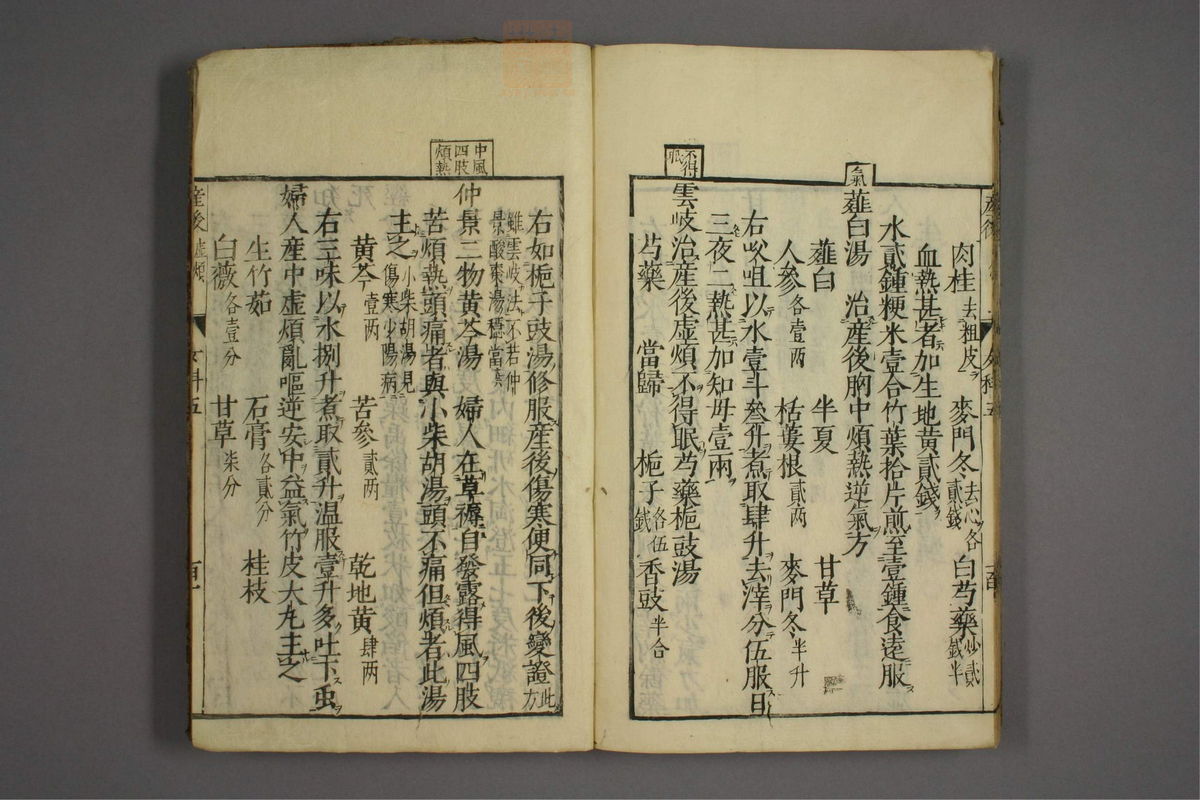 肉桂去粗皮 麥門冬去心各貳錢 白芍藥炒貳錢半
血熱甚者加生地黃貳錢
水貳鍾粳米壹合竹葉拾片煎至壹鍾食遠服
氣
薤白湯 治産後胸中煩熱逆氣方
薤白 半夏 甘草
人參各壹两 栝蔞根貳两 麥門冬半升
右㕮咀以水壹斗叄升煮取肆升去滓分伍服日
三夜二熱甚加知母壹兩
不得眠
雲岐治産後虛煩不得眠芍藥梔豉湯
芍藥 當歸 梔子各伍錢 香豉半合
右如梔子豉湯修服産後傷寒便同下後變證此方
雖雲岐法不若仲
景酸棗湯穩當
中風四肢煩熱
仲景三物黃芩湯 婦人在草褥自發露得風四肢
苦煩熱頭痛者與小柴胡湯頭不痛但煩者此湯
主之小柴胡湯見傷寒少陽病
黃芩壹两 苦參貳两 乾地黃肆两
右三味以水捌升煮取貳升温服壹升多吐下虫
婦人産中虛煩亂嘔逆安中益氣竹皮大丸主之
生竹茹 石膏各貳分 桂枝
白薇各壹分 甘草柒分
産後虛煩 女科五